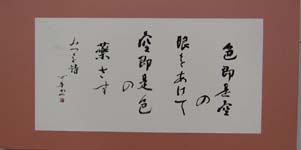 色即是空
の
眼をあけて
空即是色
の
薬さす